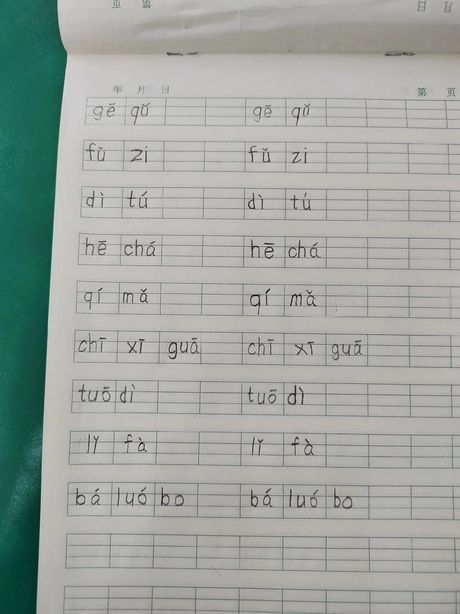 第 页
月 日
年 月 日 第 页
gē qǔ gē qǔ
fǔ zi fǔ zi
dì tú dì tú
hē chá hē chá
qí mǎ qí mǎ
chī xī guā chī xī guā
tuō dì tuō dì
lǐ fà lǐ fà
bá luó bo bá luó bo